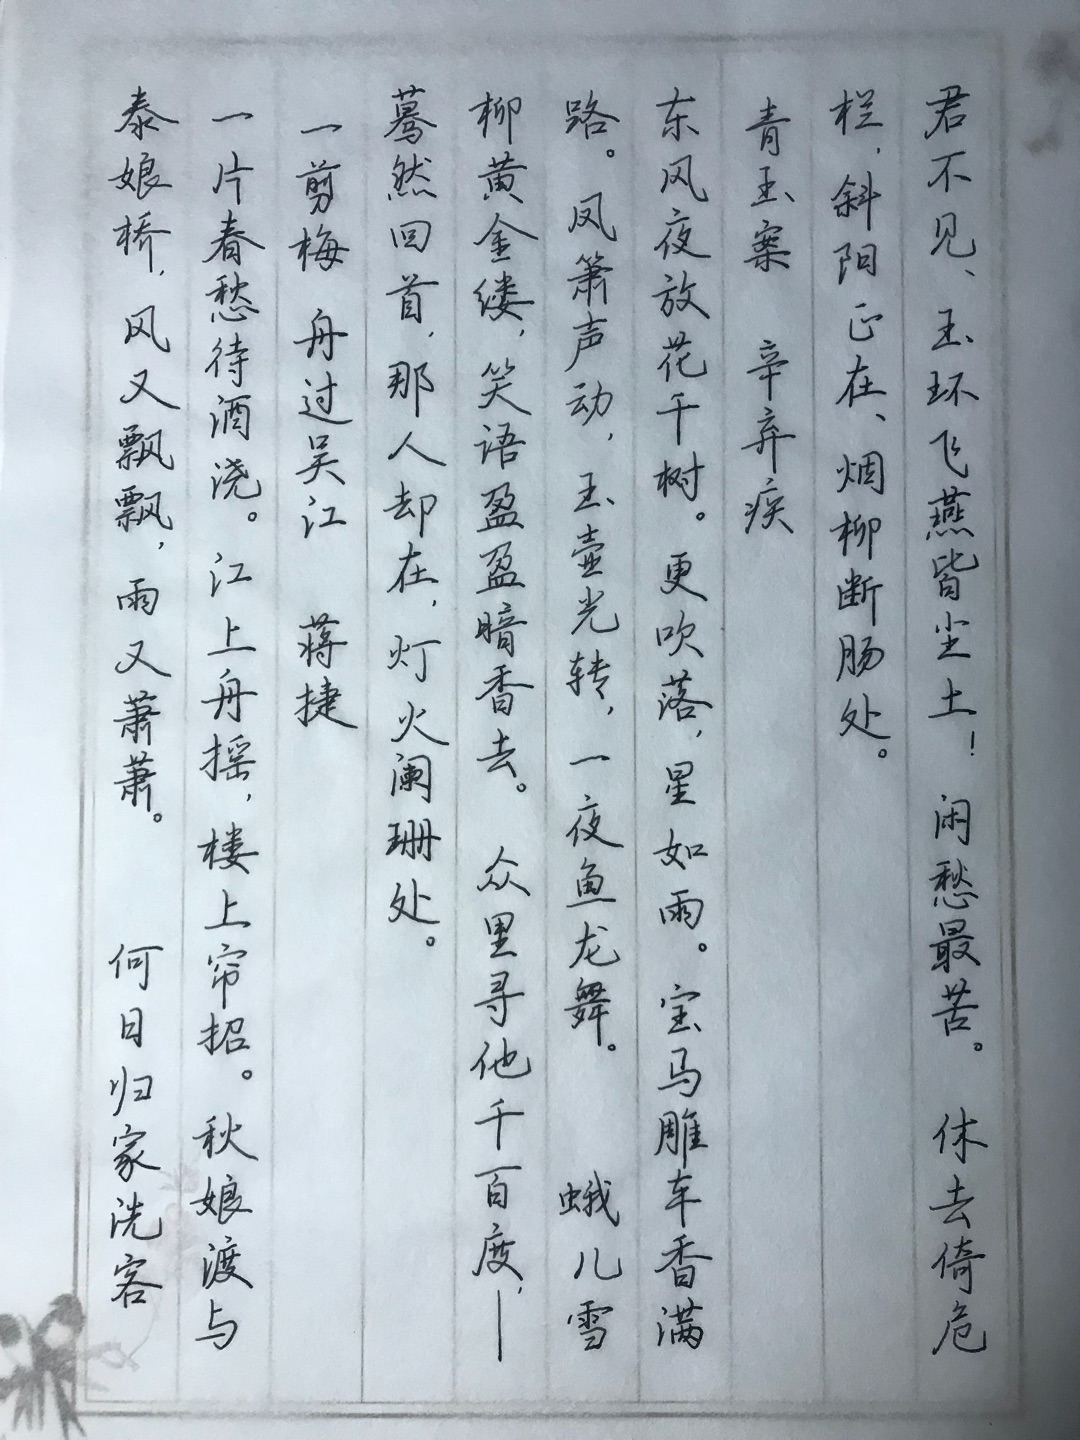 君不见、玉环飞燕皆尘土！闲愁最苦。休去倚危
栏，斜阳正在、烟柳断肠处。
青玉案 辛弃疾
东风夜放花千树。更吹落，星如雨。宝马雕车香满
路。凤箫声动，玉壶光转，一夜鱼龙舞。 蛾儿雪
柳黄金缕，笑语盈盈暗香去。众里寻他千百度，—
蓦然回首，那人却在，灯火阑珊处。
一剪梅 舟过吴江 蒋捷
一片春愁待酒浇。江上舟摇，楼上帘招。秋娘渡与
泰娘桥，风又飘飘，雨又萧萧。 何日归家洗客